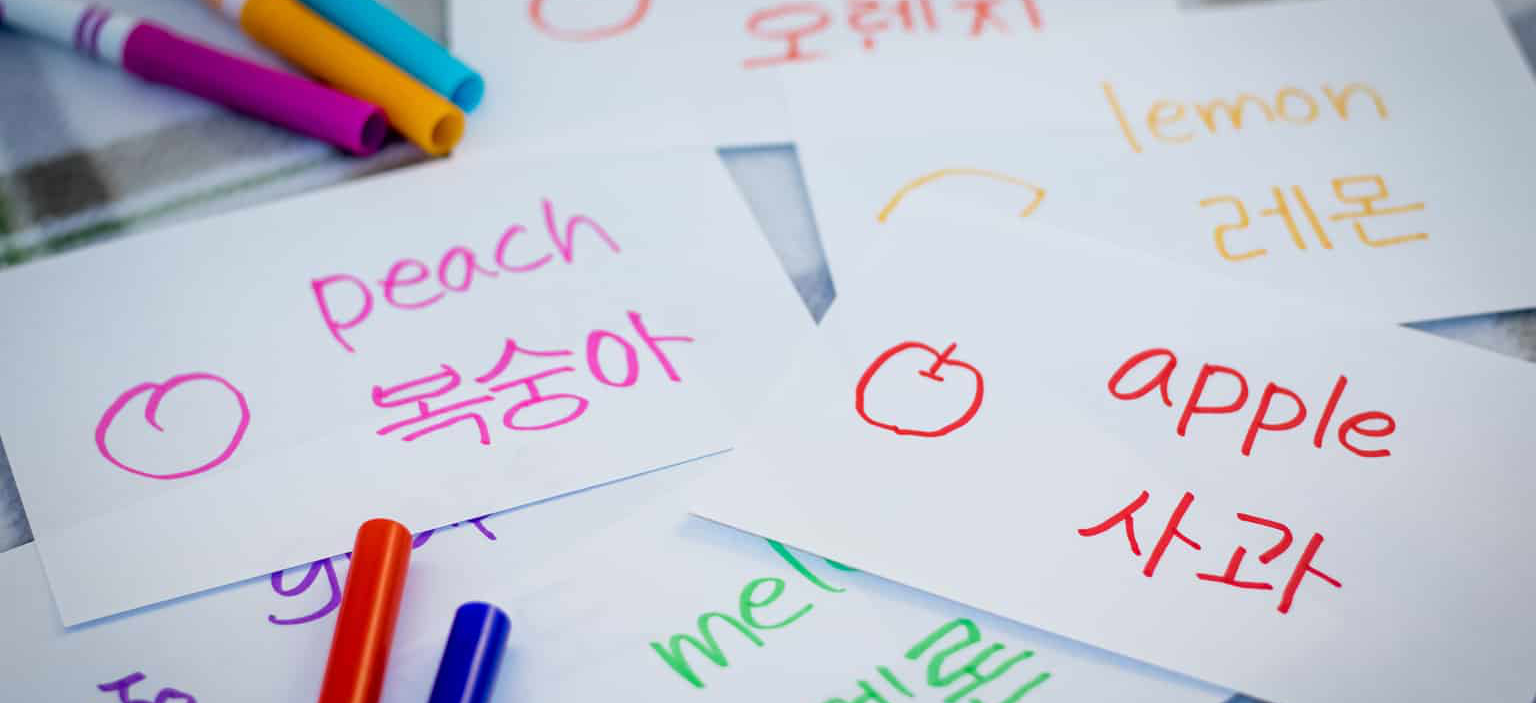 오렌지
lemon
레몬
peach
복숭아
apple
사과
mel